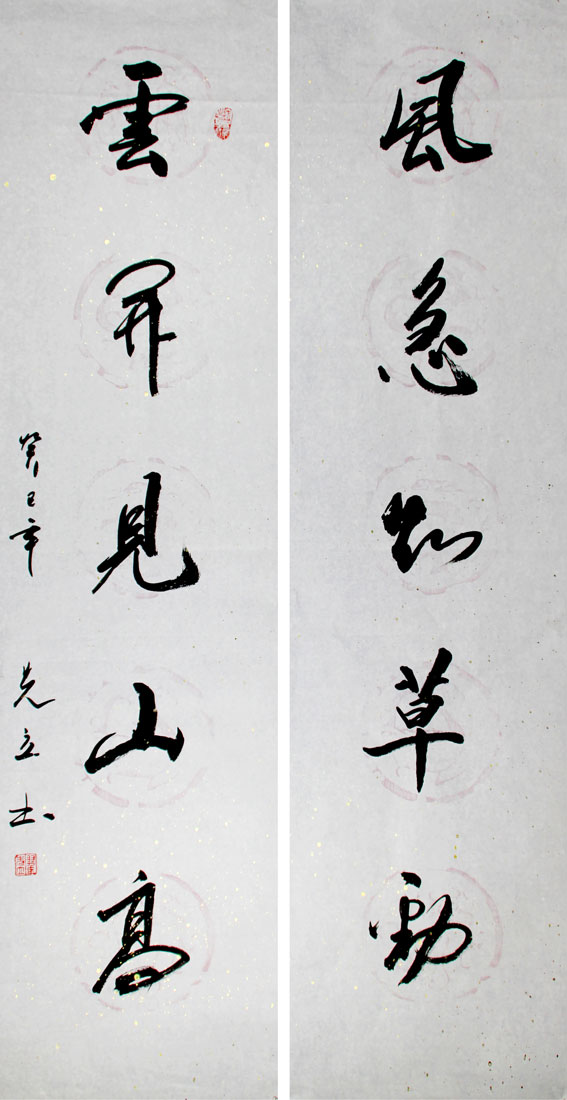 風急知草勁
雲開見山高
癸巳年 先立书